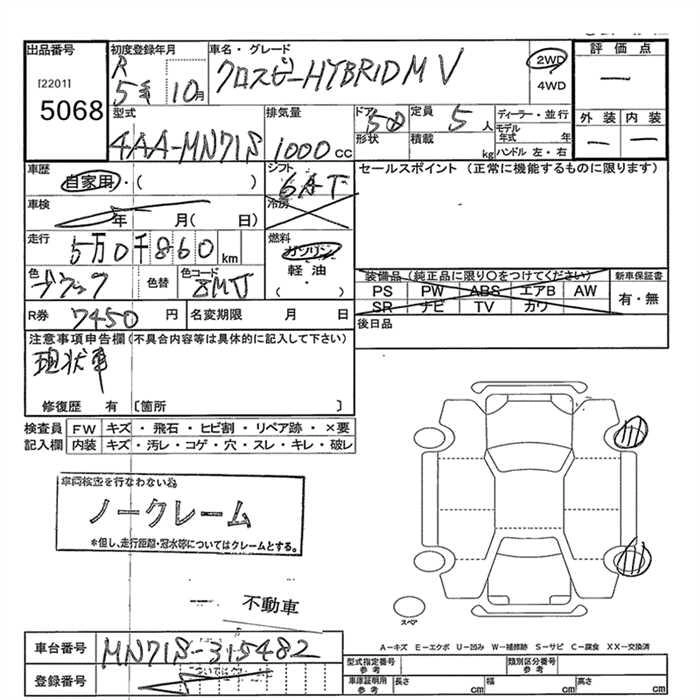 出品番号
[2201]
5068
初度登録年月
R
5年 10月
車名・グレード
クロスビーHYBRID MV
2WD
4WD
評価点
ー
外装 内装
ー ー
型式
4AA-MN71S
排気量
1000 cc
ドア 5D
形状
定員 5人
積載 kg
ディーラー・並行
モデル年式 年
ハンドル 左・右
車歴
自家用・( )
シフト
6AT
セールスポイント (正常に機能するものに限ります)
車検
年 月( 日)
冷房
走行
5万0千860km
燃料
ガソリン
軽油
( ・ )
色
ブラック
色替
色コード
装備品 (純正品に限り○をつけてください)
PS PW ABS エアB AW
SR ナビ TV カワ
新車保証書
有・無
R券 7450円
名変期限 月 日
後日品
注意事項申告欄(不具合内容等は具体的に記入して下さい)
現状車
修復歴 有 〔箇所 〕
検査員 FW キズ・飛石・ヒビ割・リペア跡・×要
記入欄 内装 キズ・汚レ・コゲ・穴・スレ・キレ・破レ
車両検査を行なわない為
ノークレーム
*但し、走行距離・冠水等についてはクレームとする。
不動車
スペア
A-キズ E-エクボ U-凹み W-補修跡 S-サビ C-腐食 XX-交換済
車台番号 MN71S-315482
登録番号
型式指定番号
参考
類別区分番号
参考
車庫証明用
参考
長さ cm 幅 cm 高さ cm